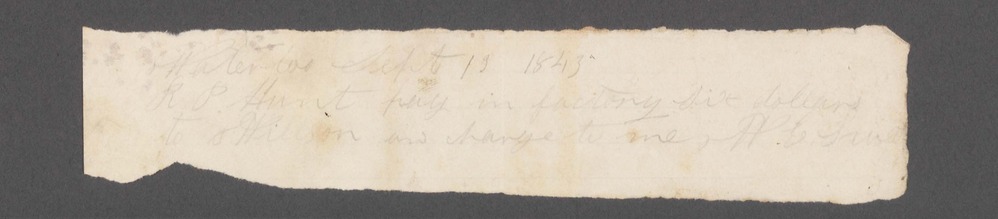 Waterloo Sept 19 1843
R P Hunt pay in factory six dollars
to William and charge to me, W E